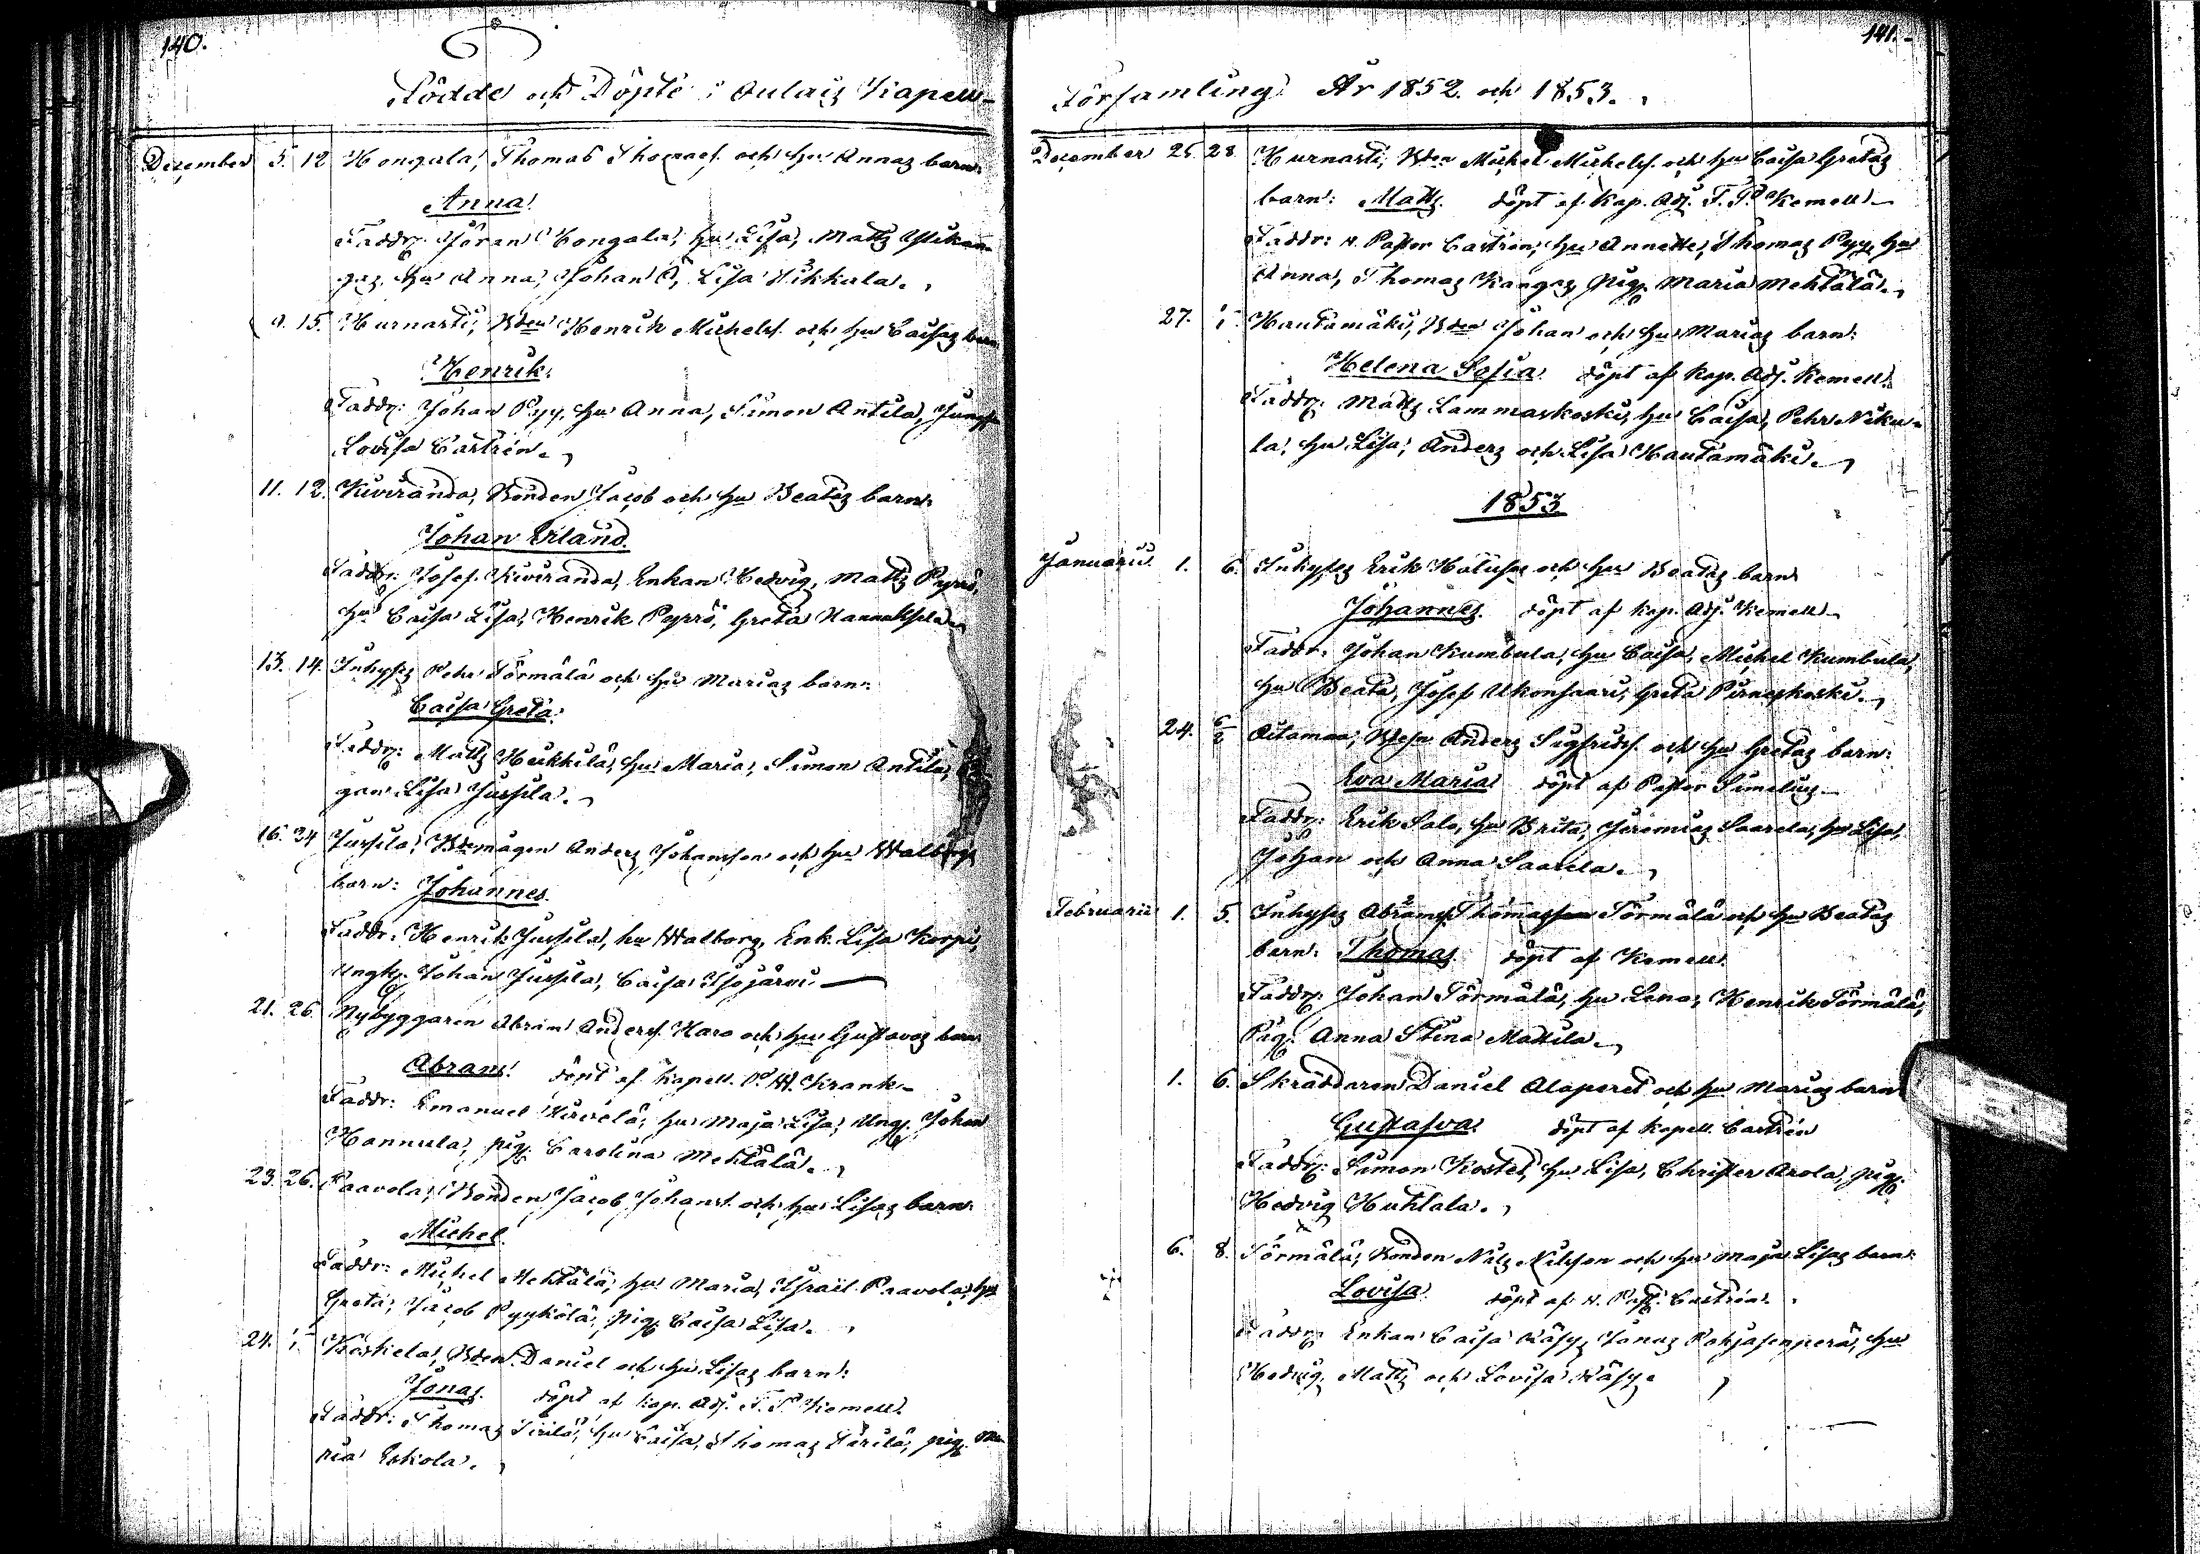 140.
Födde och Döpte i Oulais Kapell-
December 5. 12 Hongala, Thomas Thomass. och hu Annas barn:
Anna
Faddr: Jöran Hongala, hu Lisa, Matts
gas, hu Anna, Johan O, Lisa Hikkala.
9. 15. Kurnasti, Bden Henrik Michelss. och hu Caisas barn
Henrik.
Faddr: Johan Pyy, hu Anna, Simon Antila, Jungf.
Lovisa Castrén.
11. 12. Kiviranda, Bonden Jacob och hu Beatas barn:
Johan Erland.
Faddr: Josef Kiviranda, Enkan Hedvig, Matts Pyrrö,
hu Caisa Lisa, Henrik Pyrrö, Greta
13. 14. Inhyses Pehr Törmälä och hu Marias barn:
Caisa Greta.
Faddr: Matts Heikkilä, hu Maria, Simon Antila,
gan Lisa Jussila.
16. 24 Jussila, Bdemågen Anders Johansson och hu Walborgs
barn: Johannes.
Faddr: Henrik Jussila, hu Walborg, Enk. Lisa Korpi,
Ungk. Johan Jussila, Caisa Isojärvi.
21. 26. Nybyggaren Abram Anderss. Karo och hu Gustavas barn
Abram. döpt af Kapell. P. W. Krank.
Faddr: Emanuel hu Maja Lisa, Ungk. Johan
Hannula, pig. Carolina Mehtälä.
23. 26. Paavola, Bonden Jacob Johanss. och hu Lisas barn:
Michel
Faddr: Michel Mehtälä, hu Maria, Israil Paavola, hu
Greta, Jacob Pyykölä, pig. Caisa Lisa.
24. Koskela, Bden Daniel och hu Lisas barn:
Jonas. döpt af Kap. Adj. F. P. Kemell.
Faddr: Thomas hu Caisa, Thomas pig. Ma
ria Eskola.
141.
Församling År 1852. och 1853.
December 25. 28. Kurnasti, Bden Michel Michelss. och hu Caisa Gretas
barn: Matts. döpt af Kap. Adj. F. P. Kemell
Faddr: v. Pastor Castrén, hu Annette, Thomas Pyy, hu
Anna, Thomas Kangas, pig. Maria Mehtälä.
27. Hautamäki, Bden Johan och hu Marias barn:
Helena Sofia. döpt af Kap. Adj. Kemell.
Faddr: Matts Lammaskoski, hu Caisa, Pehr Niku-
la, hu Lisa, Anders och Lisa Hautamäki.
1853
Januarii 1. 6. Inhyses Erik och hu Beatas barn
Johannes. döpt af Kap. Adj. Kemell
Faddr: Johan Kumbula, hu Caisa, Michel Kumbula,
hu Beata, Josef Ukonsaari, Greta Pirneskoski.
24. 6/2 Aitamaa, Bdesn Anders Sigfridss. och hu Gretas barn:
Eva Maria döpt af Pastor Simelius
Faddr: Erik Salo, hu Brita, Jeremias Saarela, hu Lisa,
Johan och Anna Saarela.
Februarii 1. 5. Inhyses Abram Thomasson Törmälä och hu Beatas
barn: Thomas. döpt af Kemell.
Faddr: Johan Törmälä, hu Lena, Henrik Törmälä,
Pig. Anna Stina Mattila.
1. 6. Skräddaren Daniel Alaperet och hu Marias barn
Gustafva. döpt af Kapell. Castrén
Faddr: Simon Koskel, hu Lisa, Christer Arola, pig.
Hedvig Huhtala.
6. 8. Törmälä, Bonden Nils Nilsson och hu Maja Lisas barn:
Lovisa döpt af v. Past. Castrén.
Faddr: Enkan Caisa Käsys, Jonas Pohjasenperä, hu
Hedvig, Matts och Lovisa